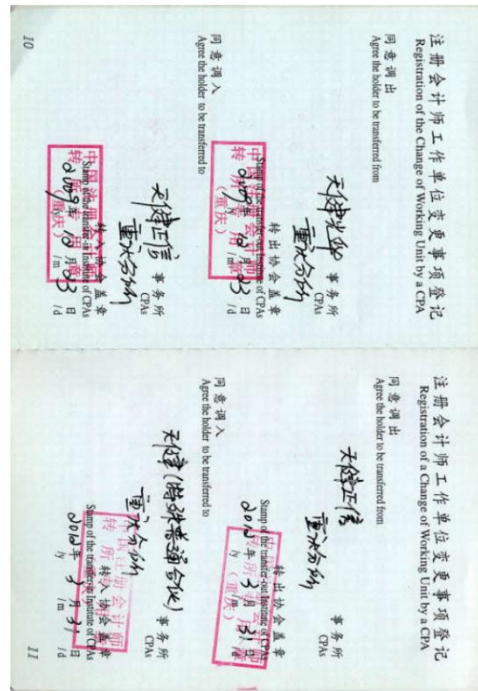 注册会计师工作单位变更事项登记
Registration of the Change of Working Unit by a CPA
同意调出
Agree the holder to be transferred from
天健光华
重庆分所
事务所
CPAs
转出协会盖章
Stamp of the transfer-out Institute of CPAs
中国注册会计师
转所专用章
(重庆)
2009年12月23日
/y /m /d
同意调入
Agree the holder to be transferred to
天健正信
重庆分所
事务所
CPAs
转入协会盖章
Stamp of the transfer-in Institute of CPAs
中国注册会计师
转所专用章
(重庆)
2009年12月23日
/y /m /d
10
注册会计师工作单位变更事项登记
Registration of a Change of Working Unit by a CPA
同意调出
Agree the holder to be transferred from
天健正信
重庆分所
事务所
CPAs
转出协会盖章
Stamp of the transfer-out Institute of CPAs
(重庆)
2012年3月31日
同意调入
Agree the holder to be transferred to
天健(特殊普通合伙)
重庆分所
事务所
CPAs
转入协会盖章
Stamp of the transfer-in Institute of CPAs
中国注册会计师
2012年3月31日
/y /m /d
11